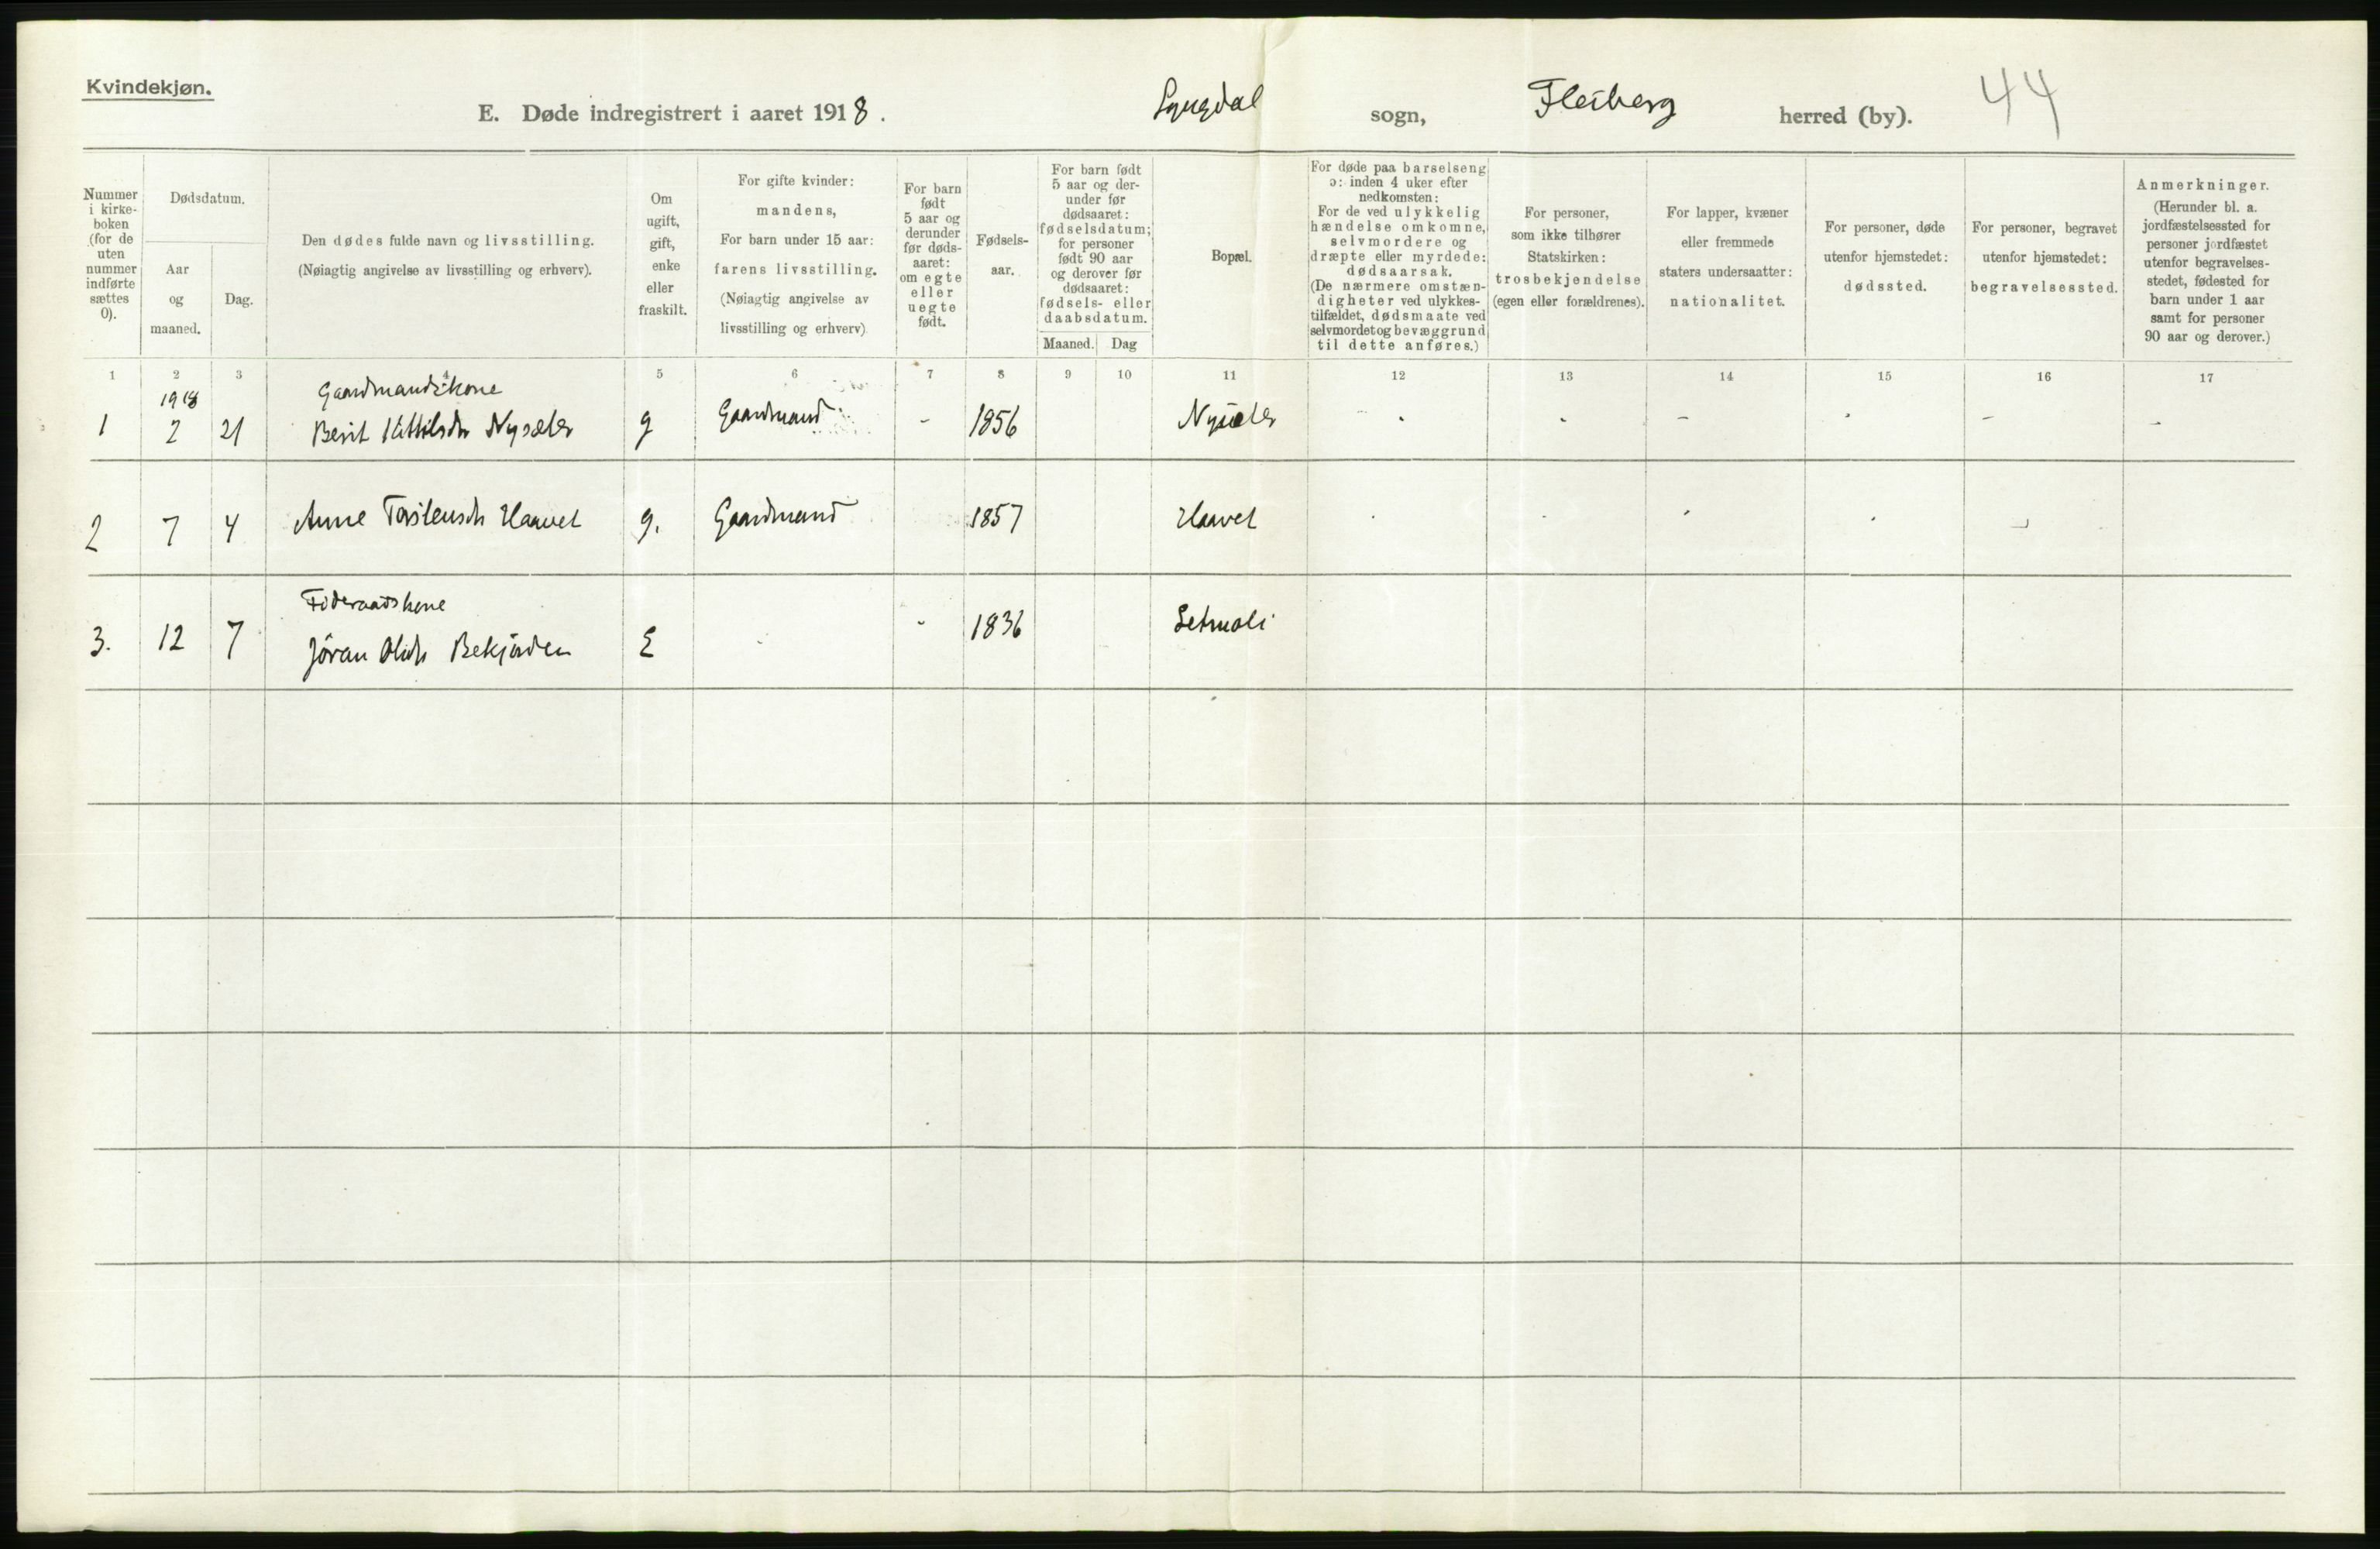 Kvindekjøn.
E. Døde indregistrert i aaret 1918. Lyngdal sogn, Flesberg herred (by). 44
Nummer
i kirke-
boken
(for de
uten
nummer
indførte
sættes
0).
Dødsdatum.
Aar
og
maaned.
Dag.
Den dødes fulde navn og livsstilling.
(Nøiagtig angivelse av livsstilling og erhverv).
Om
ugift,
gift,
enke
eller
fraskilt.
For gifte kvinder:
mandens,
For barn under 15 aar:
farens livsstilling.
(Nøiagtig angivelse av
livsstilling og erhverv)
For barn
født
5 aar og
derunder
før døds-
aaret:
om egte
eller
uegte
født.
Fødsels-
aar.
For barn født
5 aar og der-
under før
dødsaaret:
fødselsdatum;
for personer
født 90 aar
og derover før
dødsaaret:
fødsels- eller
daabsdatum.
Maaned. Dag
Bopæl.
For døde paa barselseng
ɔ: inden 4 uker efter
nedkomsten:
For de ved ulykkelig
hændelse omkomne,
selvmordere og
dræpte eller myrdede:
dødsaarsak.
(De nærmere omstæn-
digheter ved ulykkes-
tilfældet, dødsmaate ved
selvmordet og bevæggrund
til dette anføres.)
For personer,
som ikke tilhører
Statskirken:
trosbekjendelse
(egen eller forældrenes).
For lapper, kvæner
eller fremmede
staters undersaatter:
nationalitet.
For personer, døde
utenfor hjemstedet:
dødssted.
For personer, begravet
utenfor hjemstedet:
begravelsessted.
Anmerkninger.
(Herunder bl. a.
jordfæstelsessted for
personer jordfæstet
utenfor begravelses-
stedet, fødested for
barn under 1 aar
samt for personer
90 aar og derover.)
1 2 3 4 5 6 7 8 9 10 11 12 13 14 15 16 17
1918 Gaardmandskone
1 2 21 Berit Kittilsdr Nysæter g Gaardmand - 1856 Nysæter - - - - - -
2 7 4 Anne Torstensdr Haavet g. Gaardmand 1857 Haavet
Føderaadskone
3. 12 7 Jøran Olsdr Bekjorden E - - 1836 Setmoli